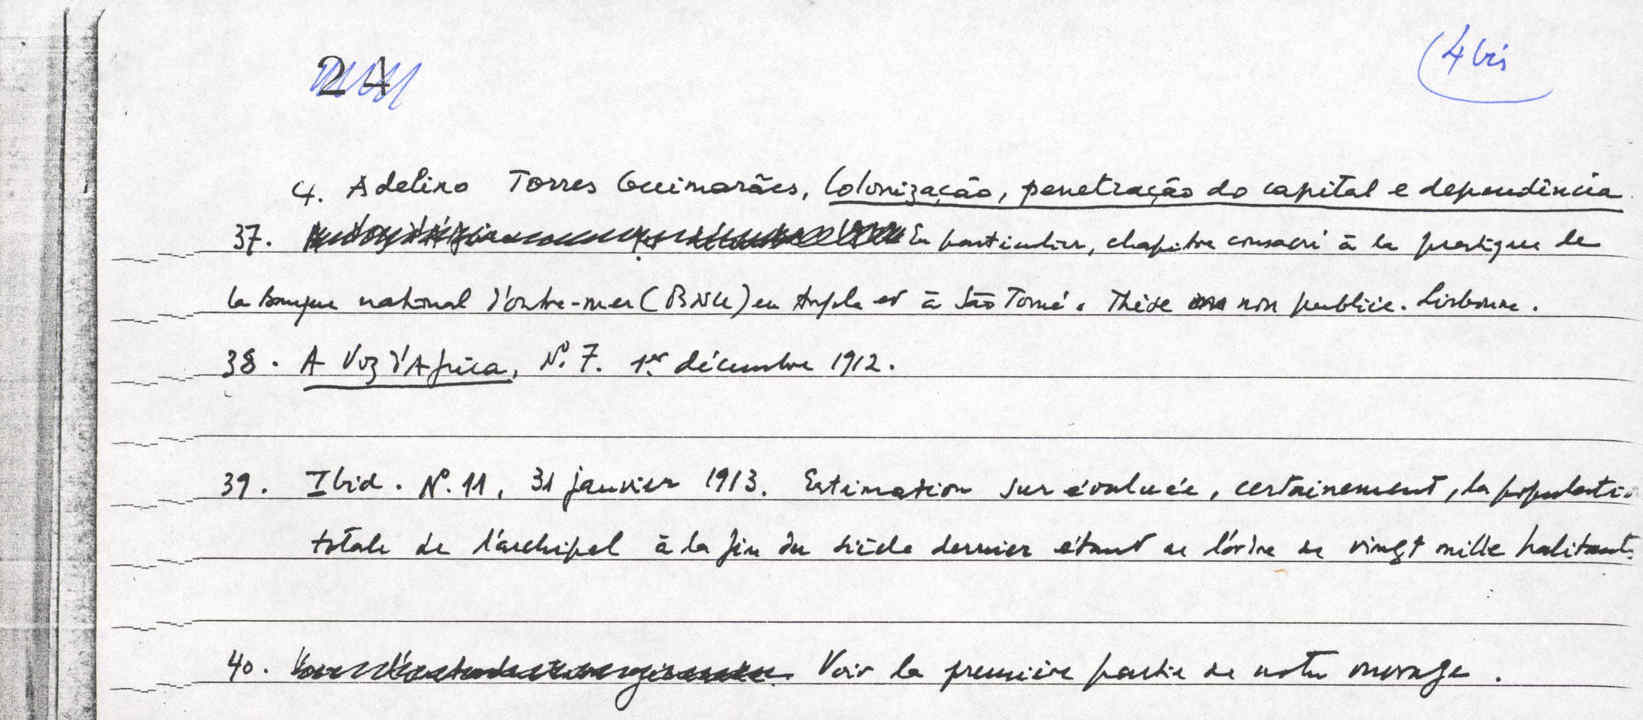 24
(4 bis
4. Adelino Torres Guimarães, Colonização, penetração do capital e dependência
37. En particulier, chapitre consacré à la pratique de
la Banque national d'outre-mer (BNU) en Angola et à São Tomé. Thèse non publiée. Lisbonne.
38. A Voz d'Africa, Nº. 7. 1er décembre 1912.
39. Ibid. Nº. 11, 31 janvier 1913. Estimation surévaluée, certainement, la populatio
totale de l'archipel à la fin du siècle dernier étant de l'ordre de vingt mille habitants.
40. Voir la première partie de notre ouvrage.